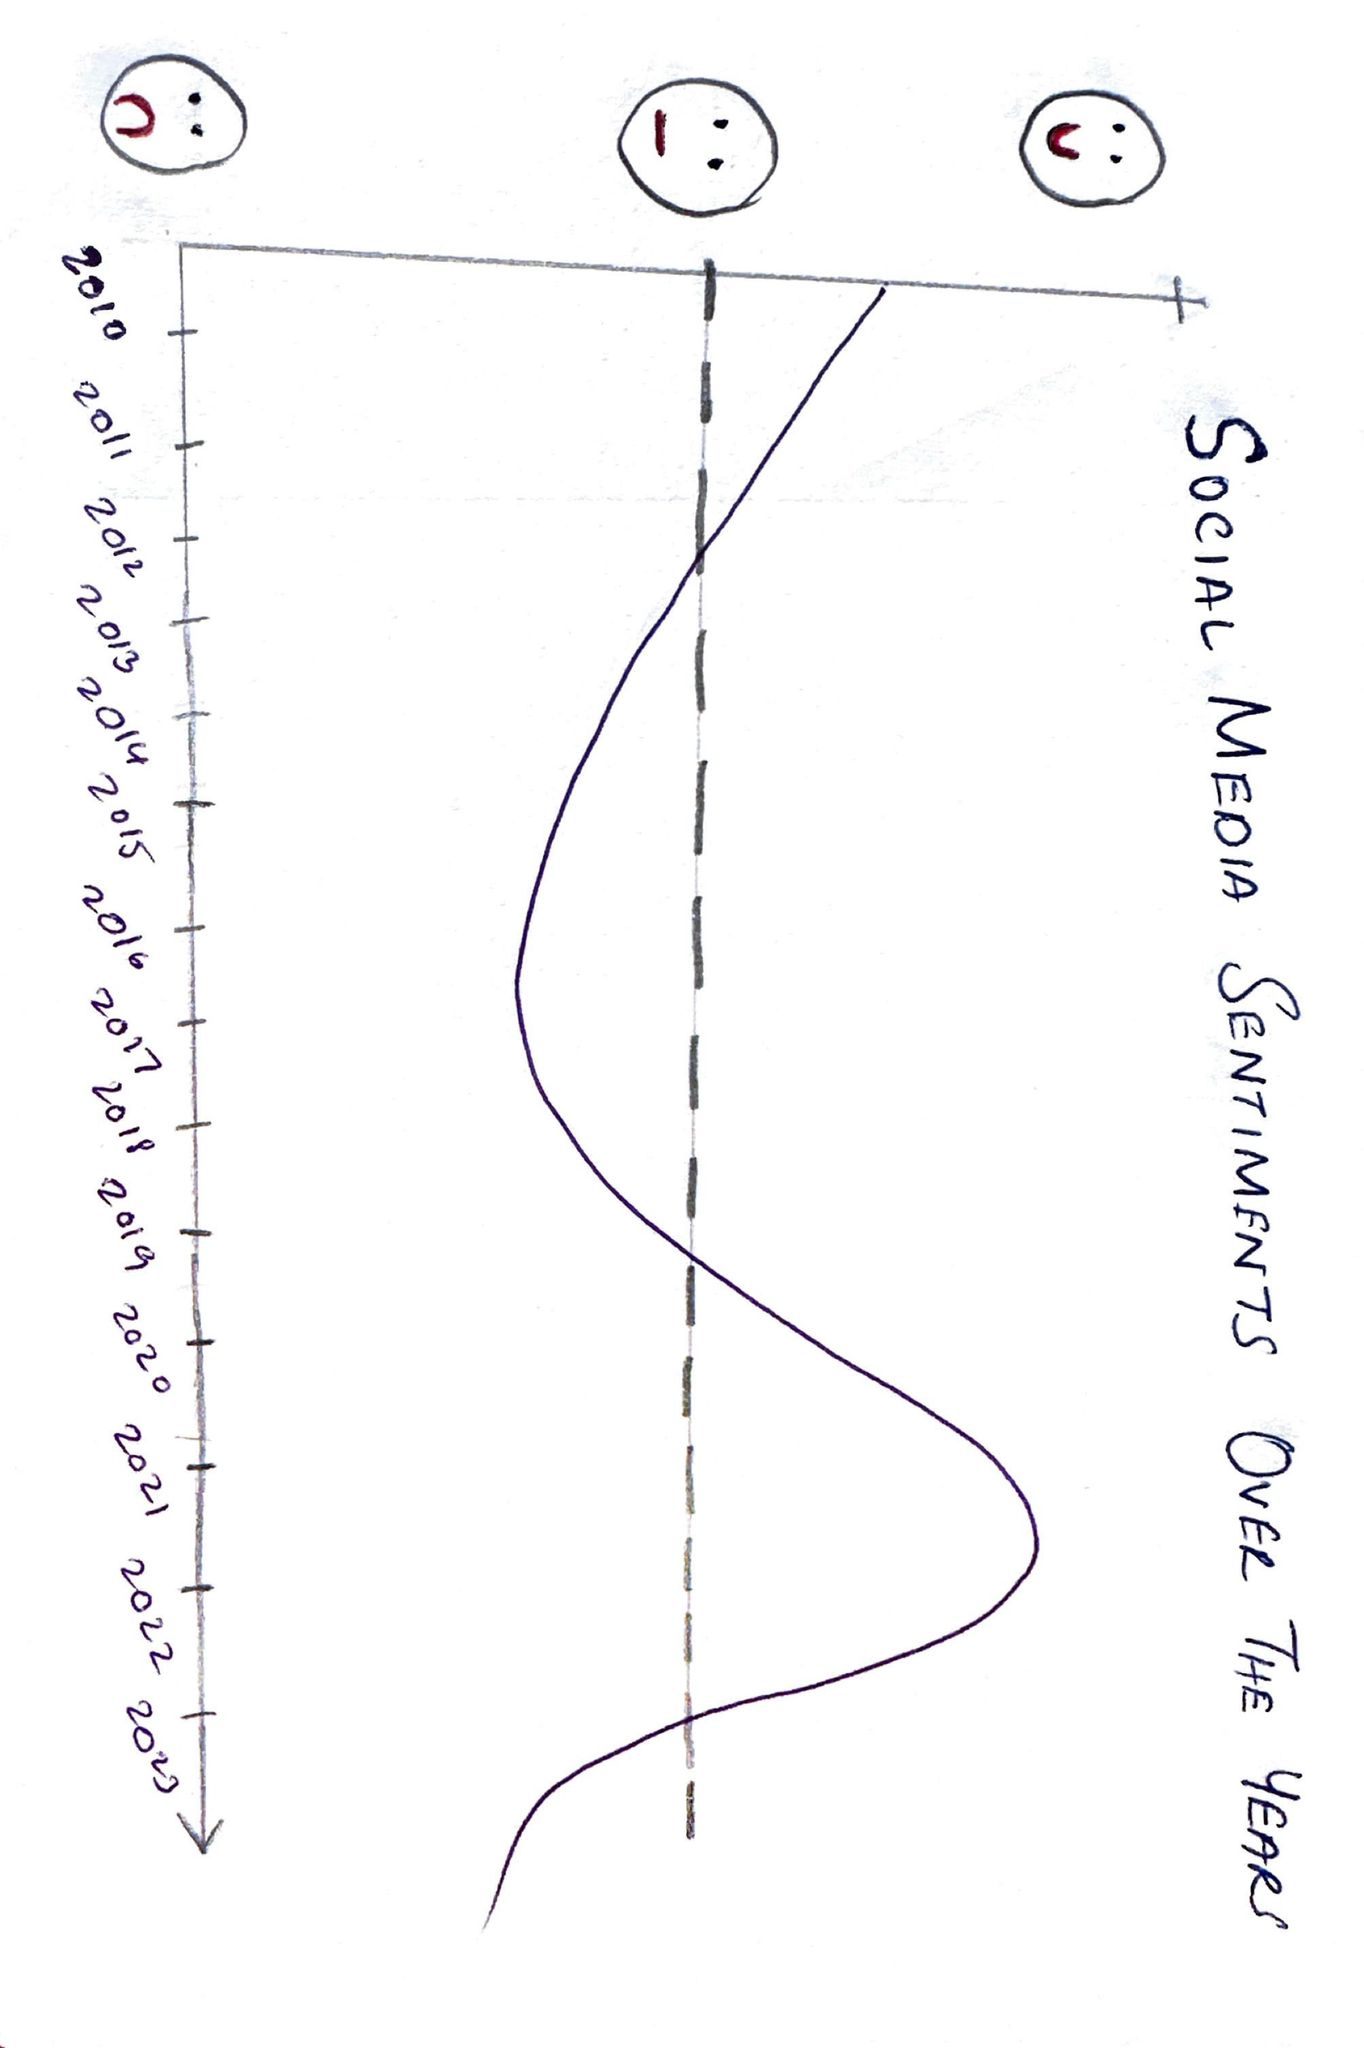 SOCIAL MEDIA SENTIMENTS OVER THE YEARS
2010 2011 2012 2013 2014 2015 2016 2017 2018 2019 2020 2021 2022 2023